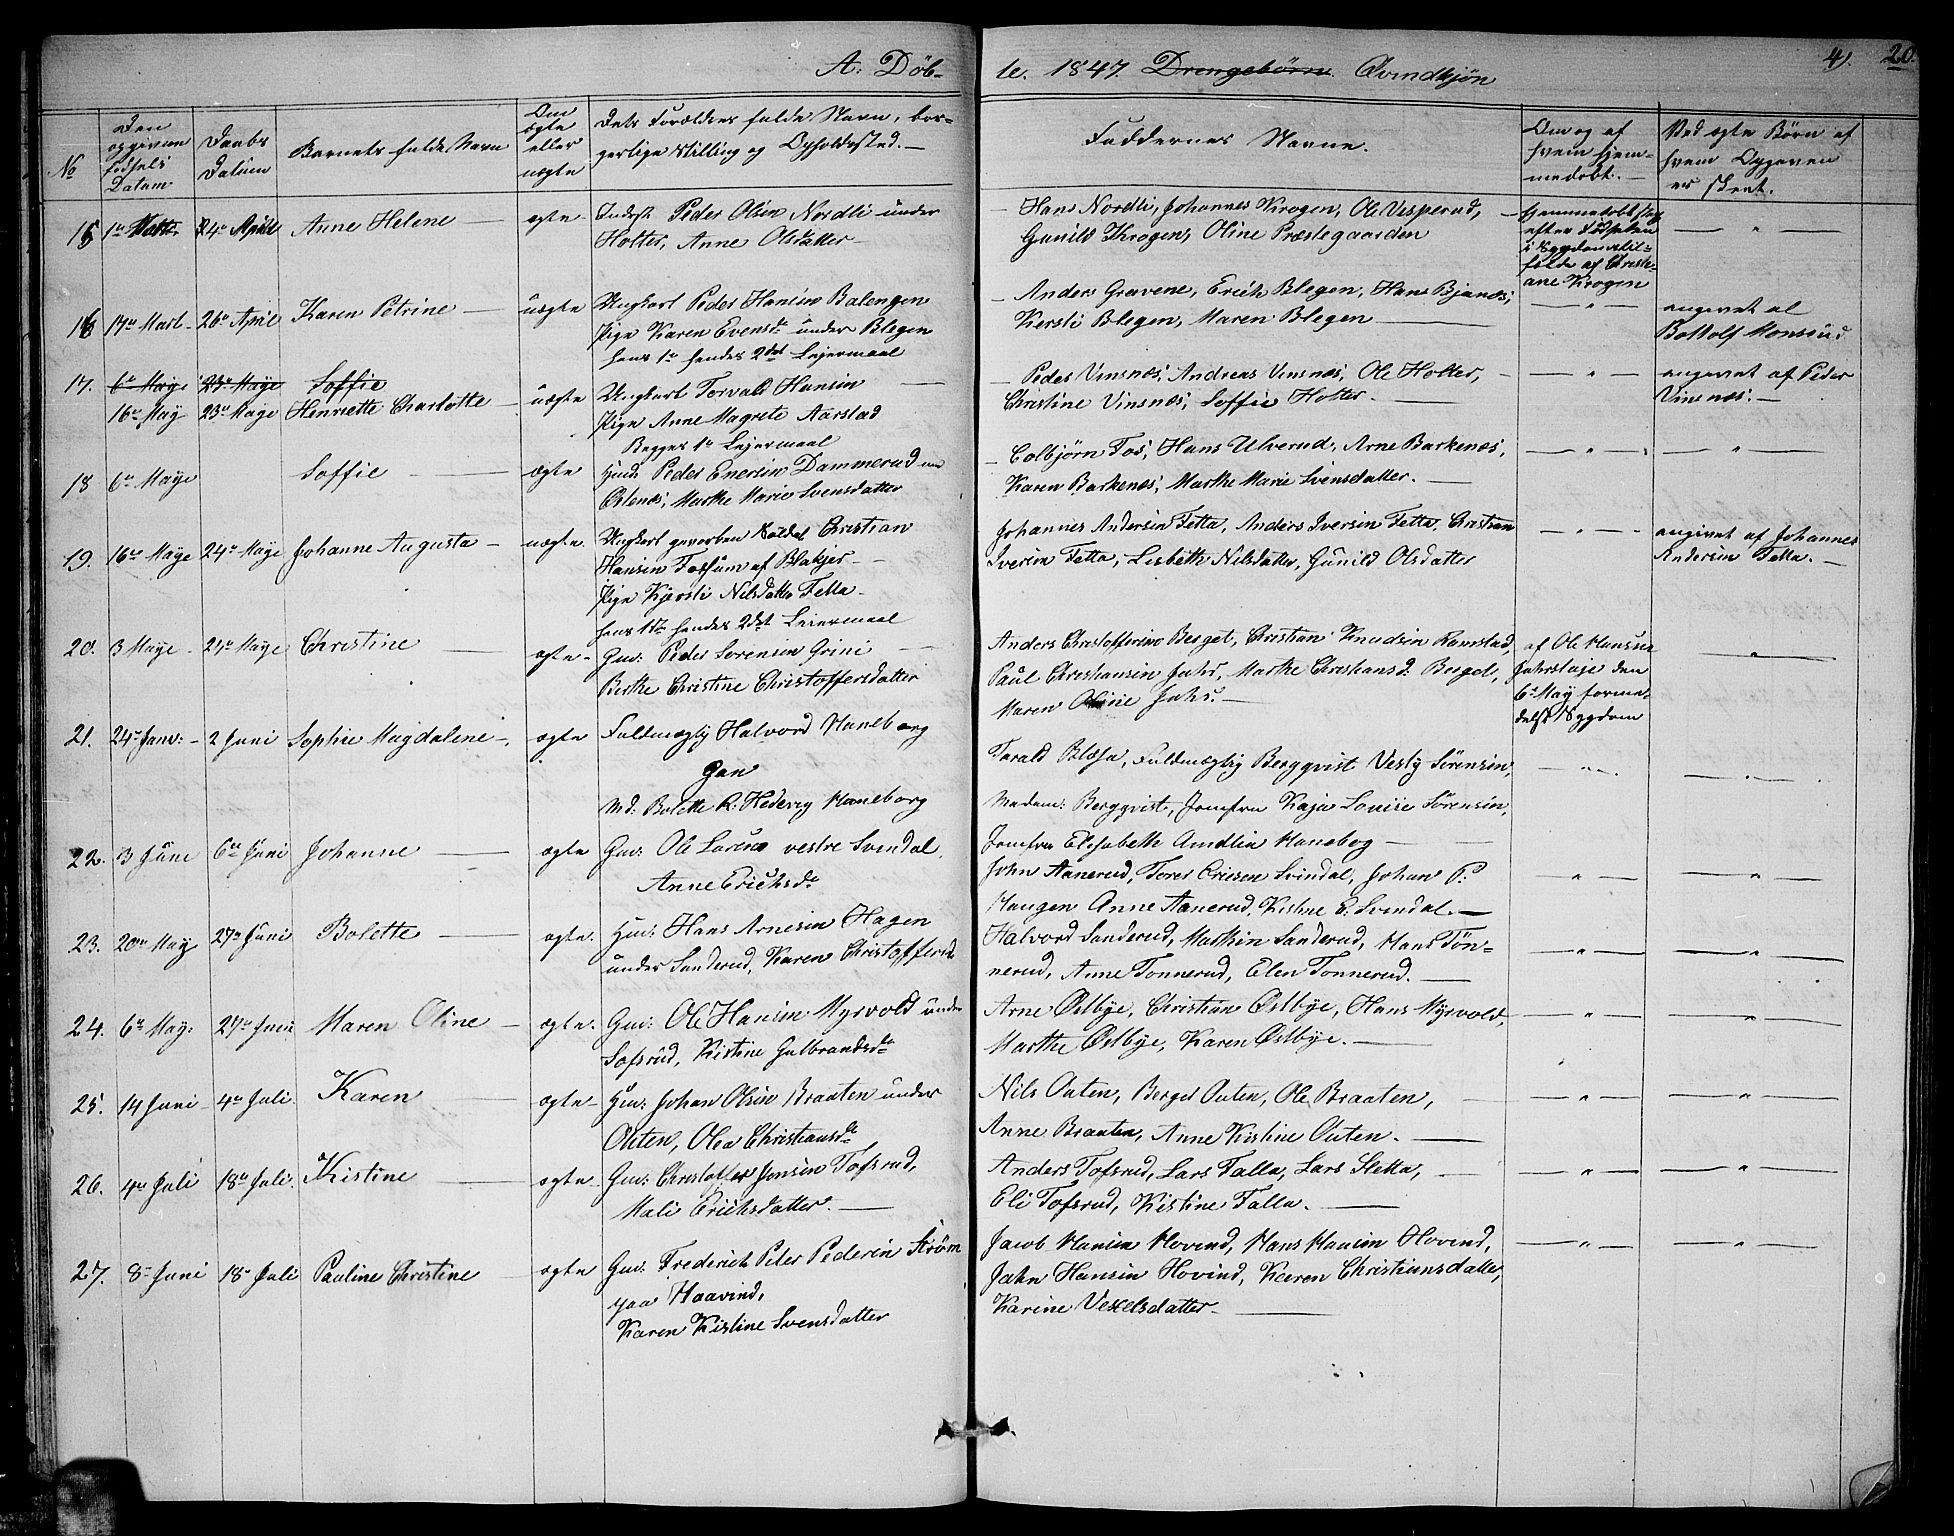 A. Døb-
te. 1847. Drengebørn. Qvindkjøn
4). 20.
No
Den opgivne fødsels Datum
Daabs Datum
Barnets fulde Navn
Om ægte eller uægte
Dets Forældres fulde Navn, borgerlige Stilling og Opholdssted.—
Faddernes Navne.
Om og af hvem hjemmedøbt.—
Ved uægte Børn af hvem Opgaven er skeet.
15 1te 24de April Anne Helene — ægte Inderst Peder Olsen Nordli under
Holter, Anne Olsdatter—
Hans Nordli, Johannes Krogen, Ole Visperud,
Gunild Krogen, Oline Præstegaarden
hjemmedøbt strax
efter Fødselen
i Sygdomstil-
fælde af Christi-
ane Krogen
16 17de Mart 26de April Karen Petrine — uægte Ungkarl Peder Hansen Balengen
Pige Karen Evensdr under Blegen
hans 1te hendes 2det Leiermaal
Anders Gravene, Erich Blegen, Hans Bjanæs,
Kersti Blegen, Maren Blegen —
angivet af
Bottolf Monserud
17. 6te Maye 23de Maye Soffie
16de May 23de Maye Henriette Charlotte — uægte Ungkarl Torvald Hansen
Pige Anne Magrete Aarstad
Begges 1te Leiermaal
Peder Vinsnæs, Andreas Vinsnæs, Ole Holter,
Christine Vinsnæs, Soffie Holter.—
angivet af Peder
Vinsnæs.—
18 6te Maye Soffie — ægte Huusm. Peder Enersen Dammerud
Østenæs, Marthe Marie Svensdatter
Colbjørn Fos, Hans Ulverud, Arne Barkenæs,
Karen Barkenæs, Marthe Marie Svensdatter.—
19. 16de Maye 24de Maye Johanne Augusta — uægte. Ungkarl geworben Soldat Christian
Hansen Fossum af Blakjer—
Pige Kjersti Nilsdatter Fetta—
hans 1ste hendes 2det Leiermaal
Johannes Andersen Fetta, Anders Iversen Fetta, Christian
Iversen Fetta, Lisbeth Nilsdatter, Gunild Olsdatter
angivet af Johannes
Andersen Fetta.—
20. 3 Maye 24de Maye Christine — ægte Gmd: Peder Sørensen Grini
Berthe Christine Christoffersdatter
Anders Christoffersen Berget, Christian Knudsen Ramstad,
Paul Christiansen Jahr, Marthe Christiansd. Berget,
Maren Oline Jahr.—
af Ole Hansen
Jahrseie den
6te May forme-
delst Sygdom
21. 24de Janv: 2 Juni Sophie Magdalene — ægte Fuldmægtig Halvord Haneborg
Gan
Md: Bolette R: Hedevig Haneborg
Tarald Blæsa, Fuldmægtig Bergqvist Vesly Sørensen,
Madam: Bergqvist, Jomfru Kaja Louise Sørensen,
Jomfru Elisabeth Amalia Haneborg —
22. 3 Juni 6te Juni Johanne — ægte Gmd: Ole Larsen vestre Svendal
Anne Erichsdr
John Aanerud, Tores Ericsen Svindal, Johan P:
Haugen Anne Aanerud, Kistine E: Svendal.—
23. 20de May 27de Juni Bolette — ægte Hmd: Hans Arnesen Hagen
under Sanderud, Karen Christoffersd.
Halvord Sanderud, Marthin Sanderud, Hans Tøn-
nerud, Anne Tonnerud, Elen Tonnerud.—
24. 6te May: 27de Juni Maren Oline — ægte Gmd: Ole Hansen Myrvold under
Sofsrud, Kistine Gulbrandsdr
Arne Østbye, Christian Østbye, Hans Myrvold,
Marthe Østbye, Karen Østbye.—
25. 14 Juni 4de Juli Karen — ægte Hmd: Johan Olsen Braaten under
Outen, Olea Christiansdr
Nils Outen, Berget Outen, Ole Braaten,
Anne Braaten, Anne Kistine Outen.—
26. 4de Juli 18de Juli Kistine — ægte Gmd: Christoffer Jensen Tofsrud,
Mali Erichsdatter.—
Anders Tofsrud, Lars Falla, Lars Sletta,
Eli Tofsrud, Kistine Falla.—
27. 8de Juni 18de Juli Pauline Christine ægte Gmd: Frederich Peter Pedersen Strøm
paa Haavind,
Karen Kistine Svensdatter
Jacob Hansen Hovind, Hans Hansen Hovind,
Jahn Hansen Hovind, Karen Christiansdatter,
Karine Vexelsdatter—